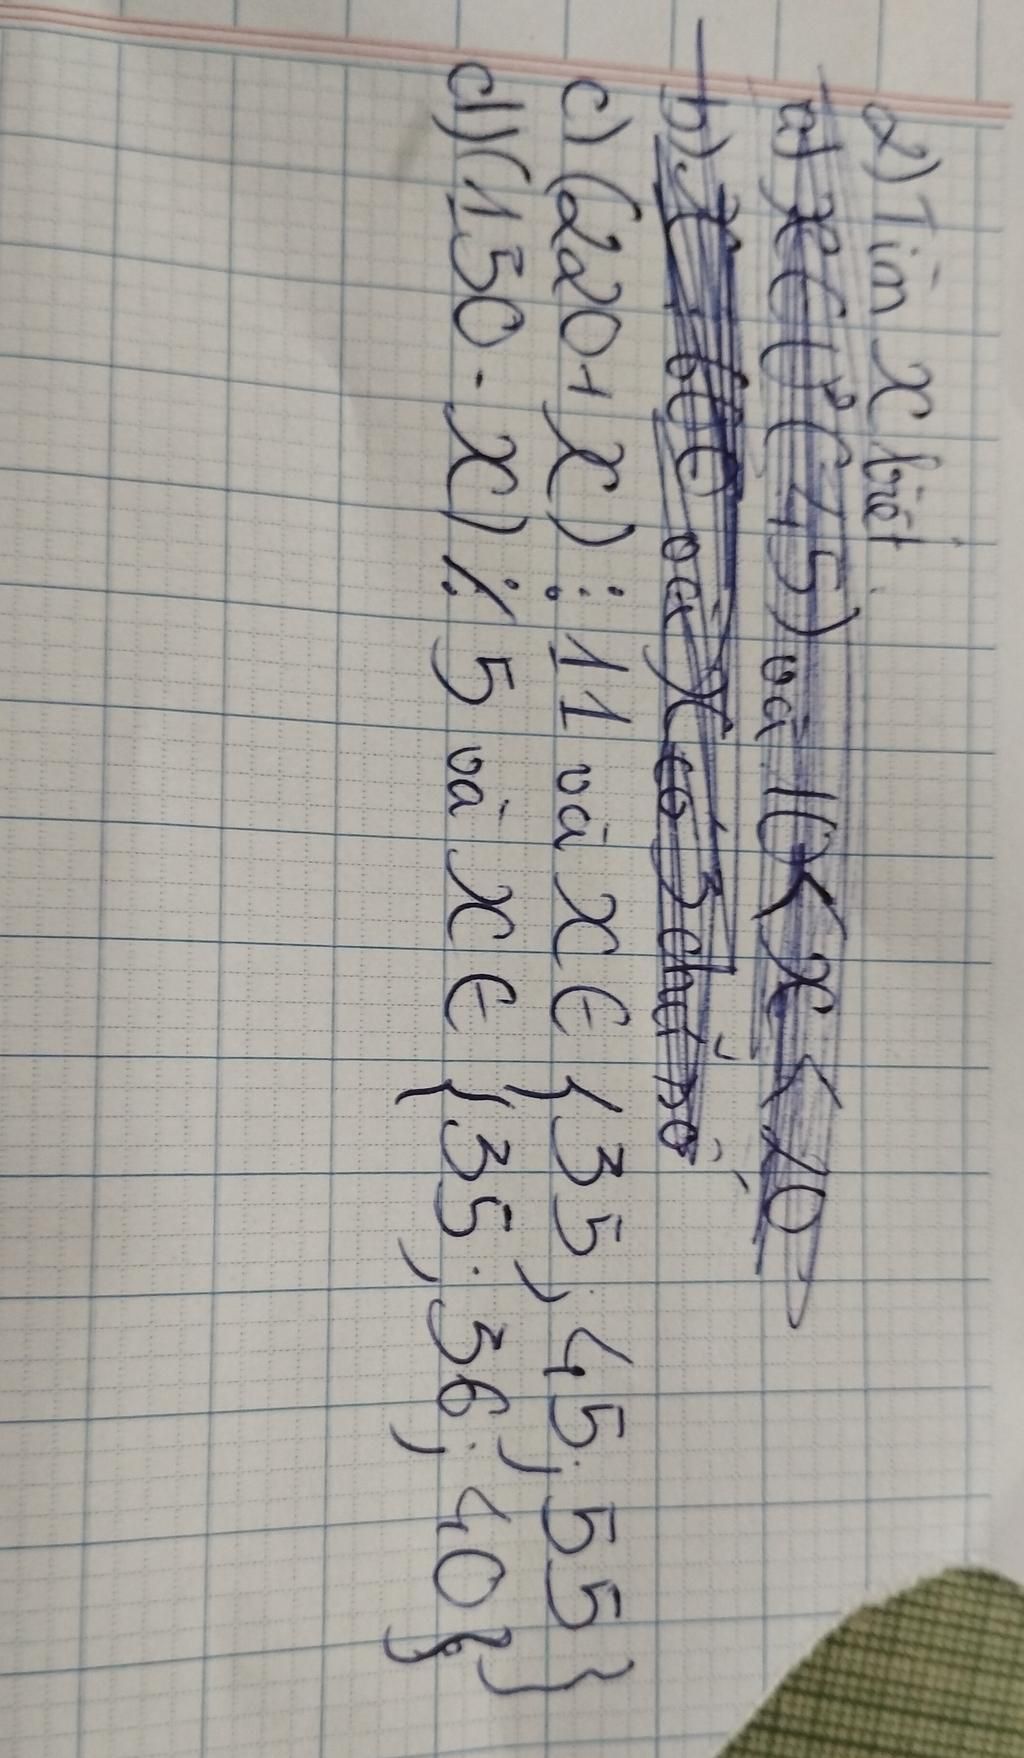 2) Tìm x biết
a) x ∈ Ư(45) và 10 < x < 20
b) x và x có 3 chữ số
c) (220 + x) ⋮ 11 và x ∈ {35; 45; 55}
d) (150 - x) ⋮̸ 5 và x ∈ {35; 36; 40}